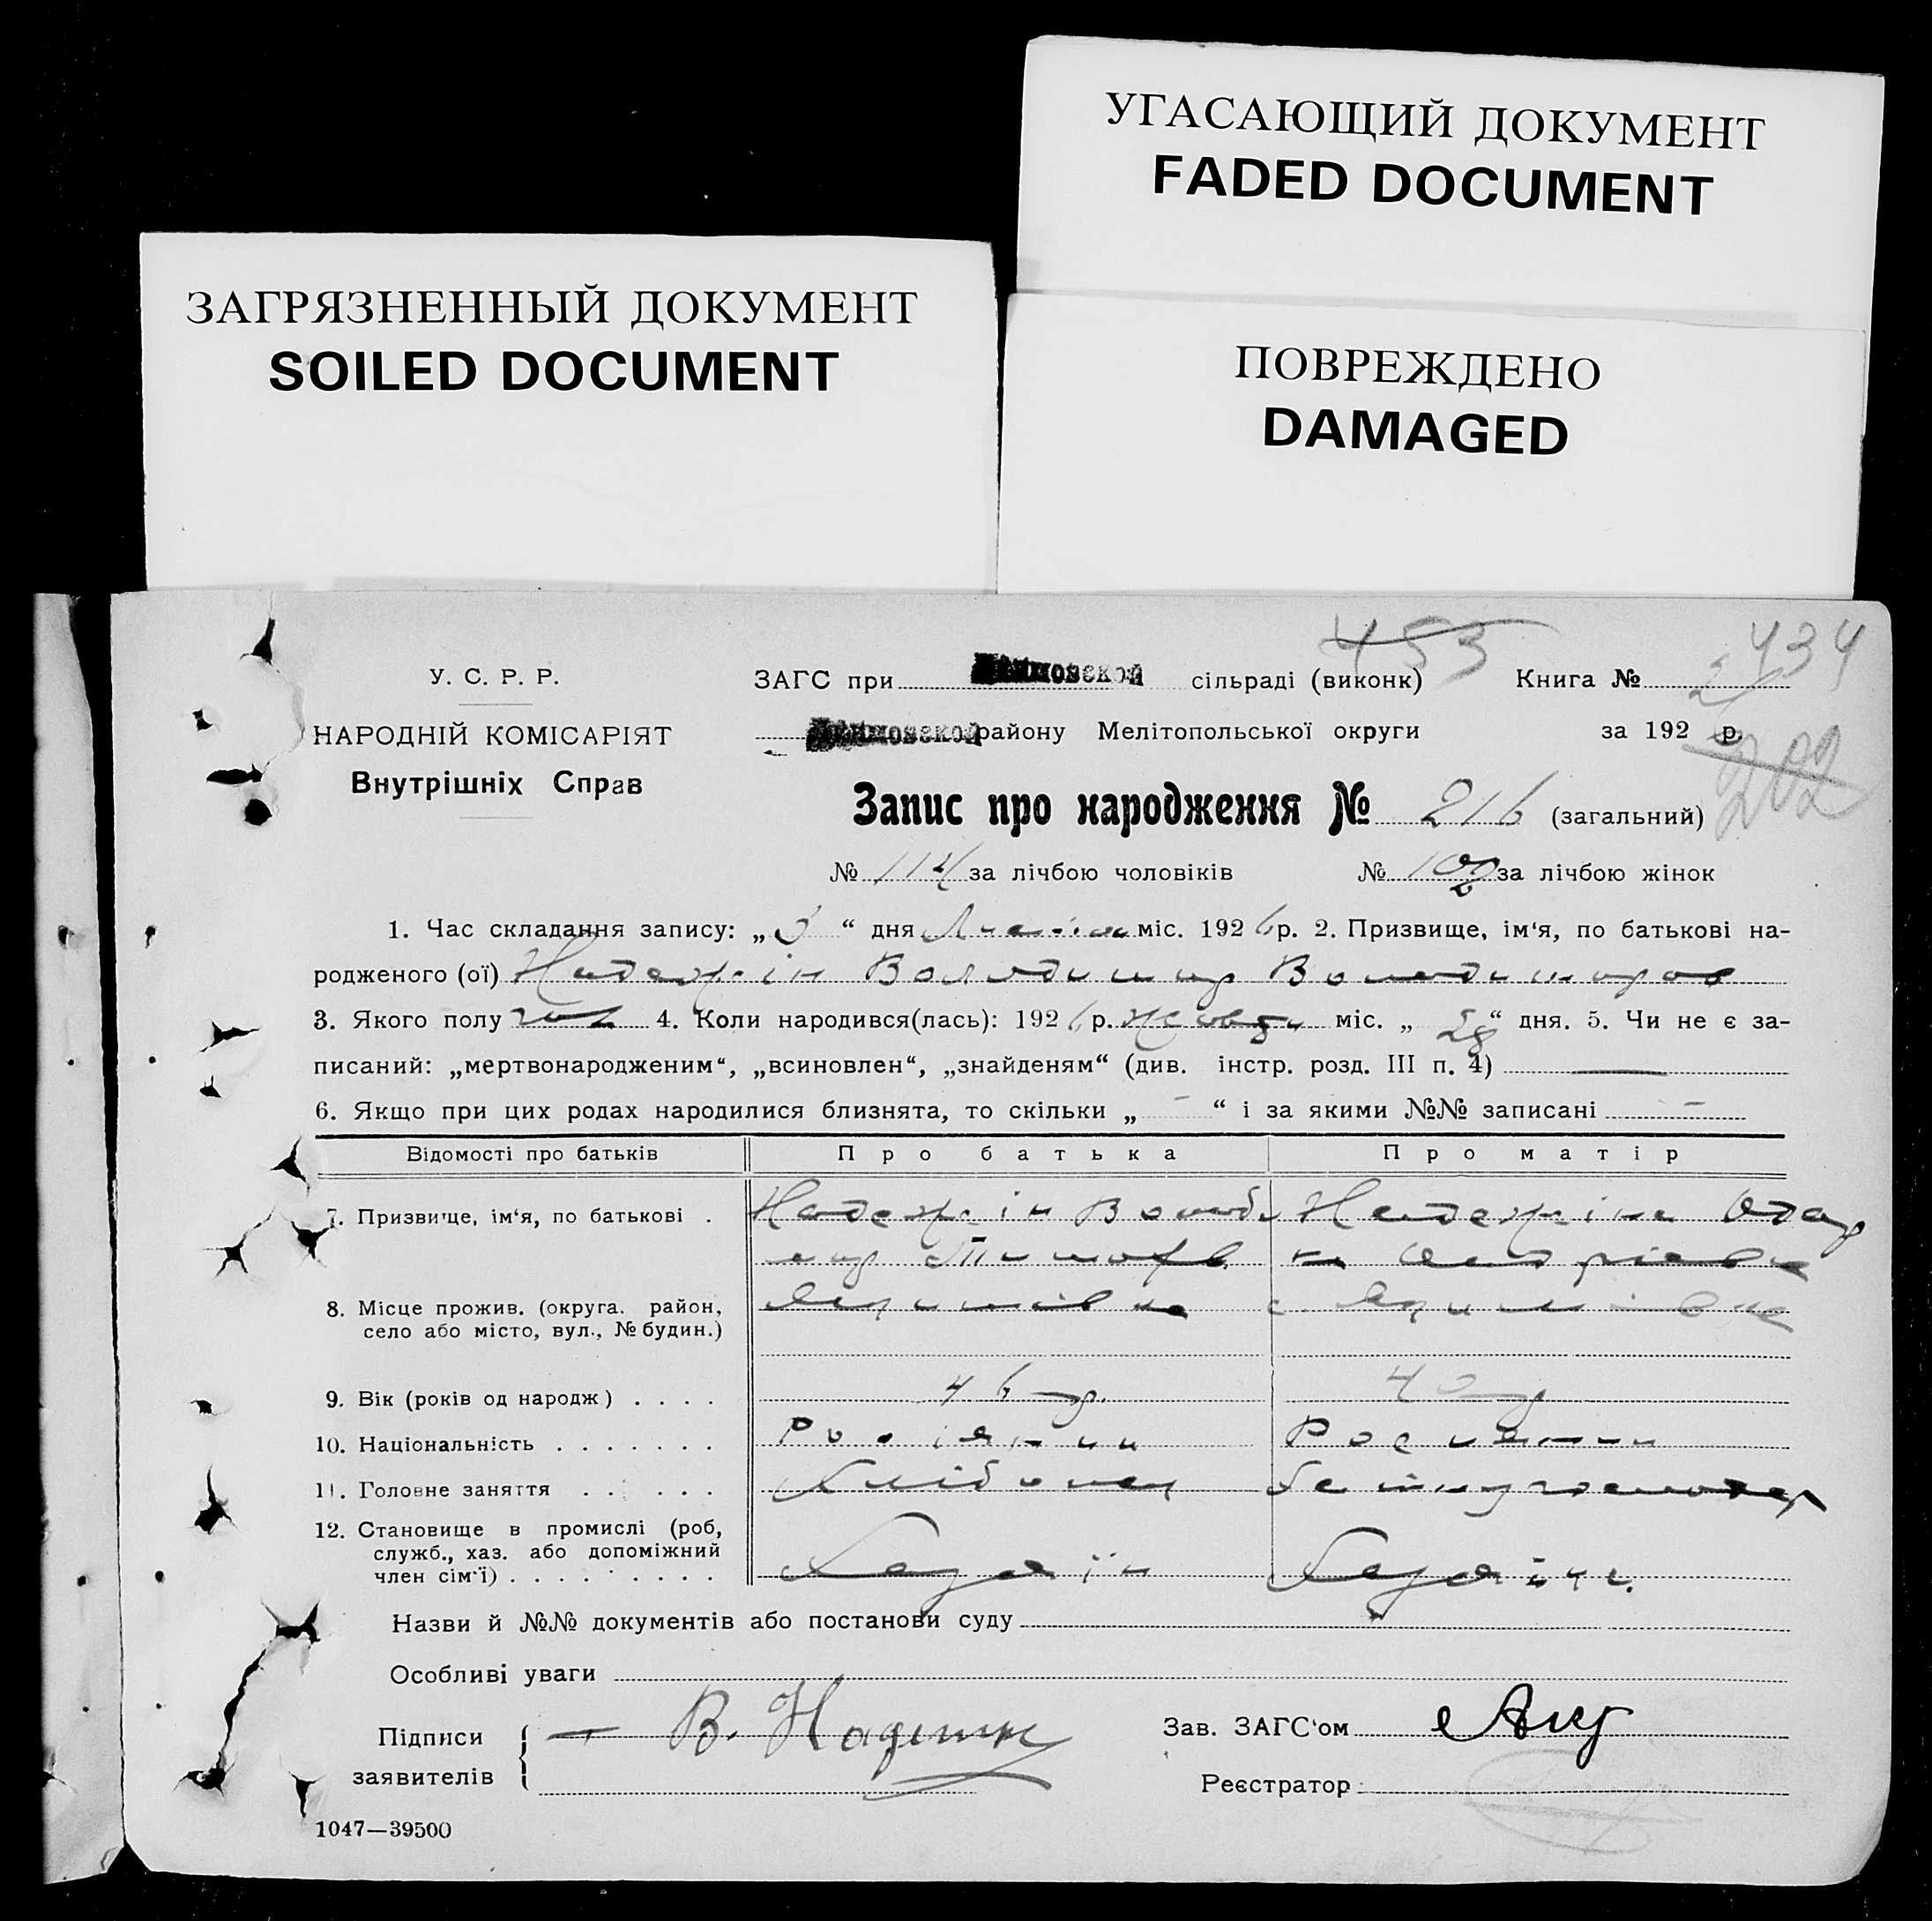 УГАСАЮЩИЙ ДОКУМЕНТ
FADED DOCUMENT
ЗАГРЯЗНЕННЫЙ ДОКУМЕНТ
SOILED DOCUMENT
ПОВРЕЖДЕНО
DAMAGED
453
434
У. С. Р. Р.
ЗАГС при сільраді (виконк) Книга № 2
НАРОДНІЙ КОМІСАРІЯТ
району Мелітопольської округи за 192 р.
202
Внутрішніх Справ
Запис про народження № 216 (загальний)
№ 114 за лічбою чоловіків № 102 за лічбою жінок
1. Час складання запису: „3“ дня міс. 1926 р. 2. Призвище, ім‘я, по батькові на-
родженого (ої) Надежкін Володимир Володимиров
3. Якого полу чол 4. Коли народився(лась): 1926 р. жовтн міс. „28“ дня. 5. Чи не є за-
писаний: „мертвонародженим“, „всиновлен“, „знайденям“ (див. інстр. розд. III п. 4) —
6. Якщо при цих родах народилися близнята, то скільки „ - “ і за якими №№ записані -
Відомості про батьків Про батька Про матір
7. Призвище, ім‘я, по батькові . Надежкін Володи Надежкіна Одар
мир Тимоф. ка Андріевна
8. Місце прожив. (округа. район, Якимівка с. Якимівка
село або місто, вул., № будин.)
9. Вік (років од народж) . . . . 46 р. 40 р
10. Національність . . . . . . . Росіянин Росиянин
11. Головне заняття . . . . . . Хлібопаш
12. Становище в промислі (роб,
служб., хаз. або допоміжний
член сім‘ї) . . . . . . . . . Хазяїн Хазяїн.
Назви й №№ документів або постанови суду
Особливі уваги
Підписи
заявителів
В.
Зав. ЗАГС‘ом
Реєстратор
1047—39500